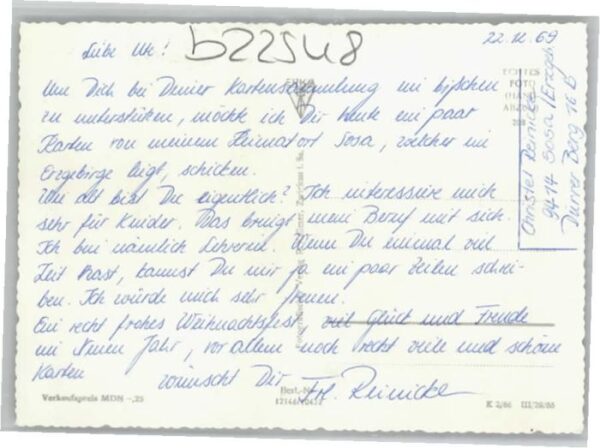 Liebe Ute!
b22548
22.12.69
Um Dich bei Deiner Kartensammlung ein bißchen
zu unterstützen, möchte ich Dir heute ein paar
Karten von meinem Heimatort Sosa, welcher im
Erzgebirge liegt, schicken.
Wie alt bist Du eigentlich? Ich interessiere mich
sehr für Kinder. Das bringt mein Beruf mit sich.
Ich bin nämlich Lehrerin. Wenn Du einmal viel
Zeit hast, kannst Du mir ja ein paar Zeilen schrei-
ben. Ich würde mich sehr freuen.
Ein recht frohes Weihnachtsfest, viel Glück und Freude
im Neuen Jahr, vor allem noch recht viele und schöne
Karten
wünscht Dir Frl. Reinicke
Christel Reinicke
9414 Sosa / Erzgeb.
Dürrer Berg 76 B
ECHTES
FOTO
Verkaufspreis MDN -,25
Best.-Nr.
K 2/66 III/28/66